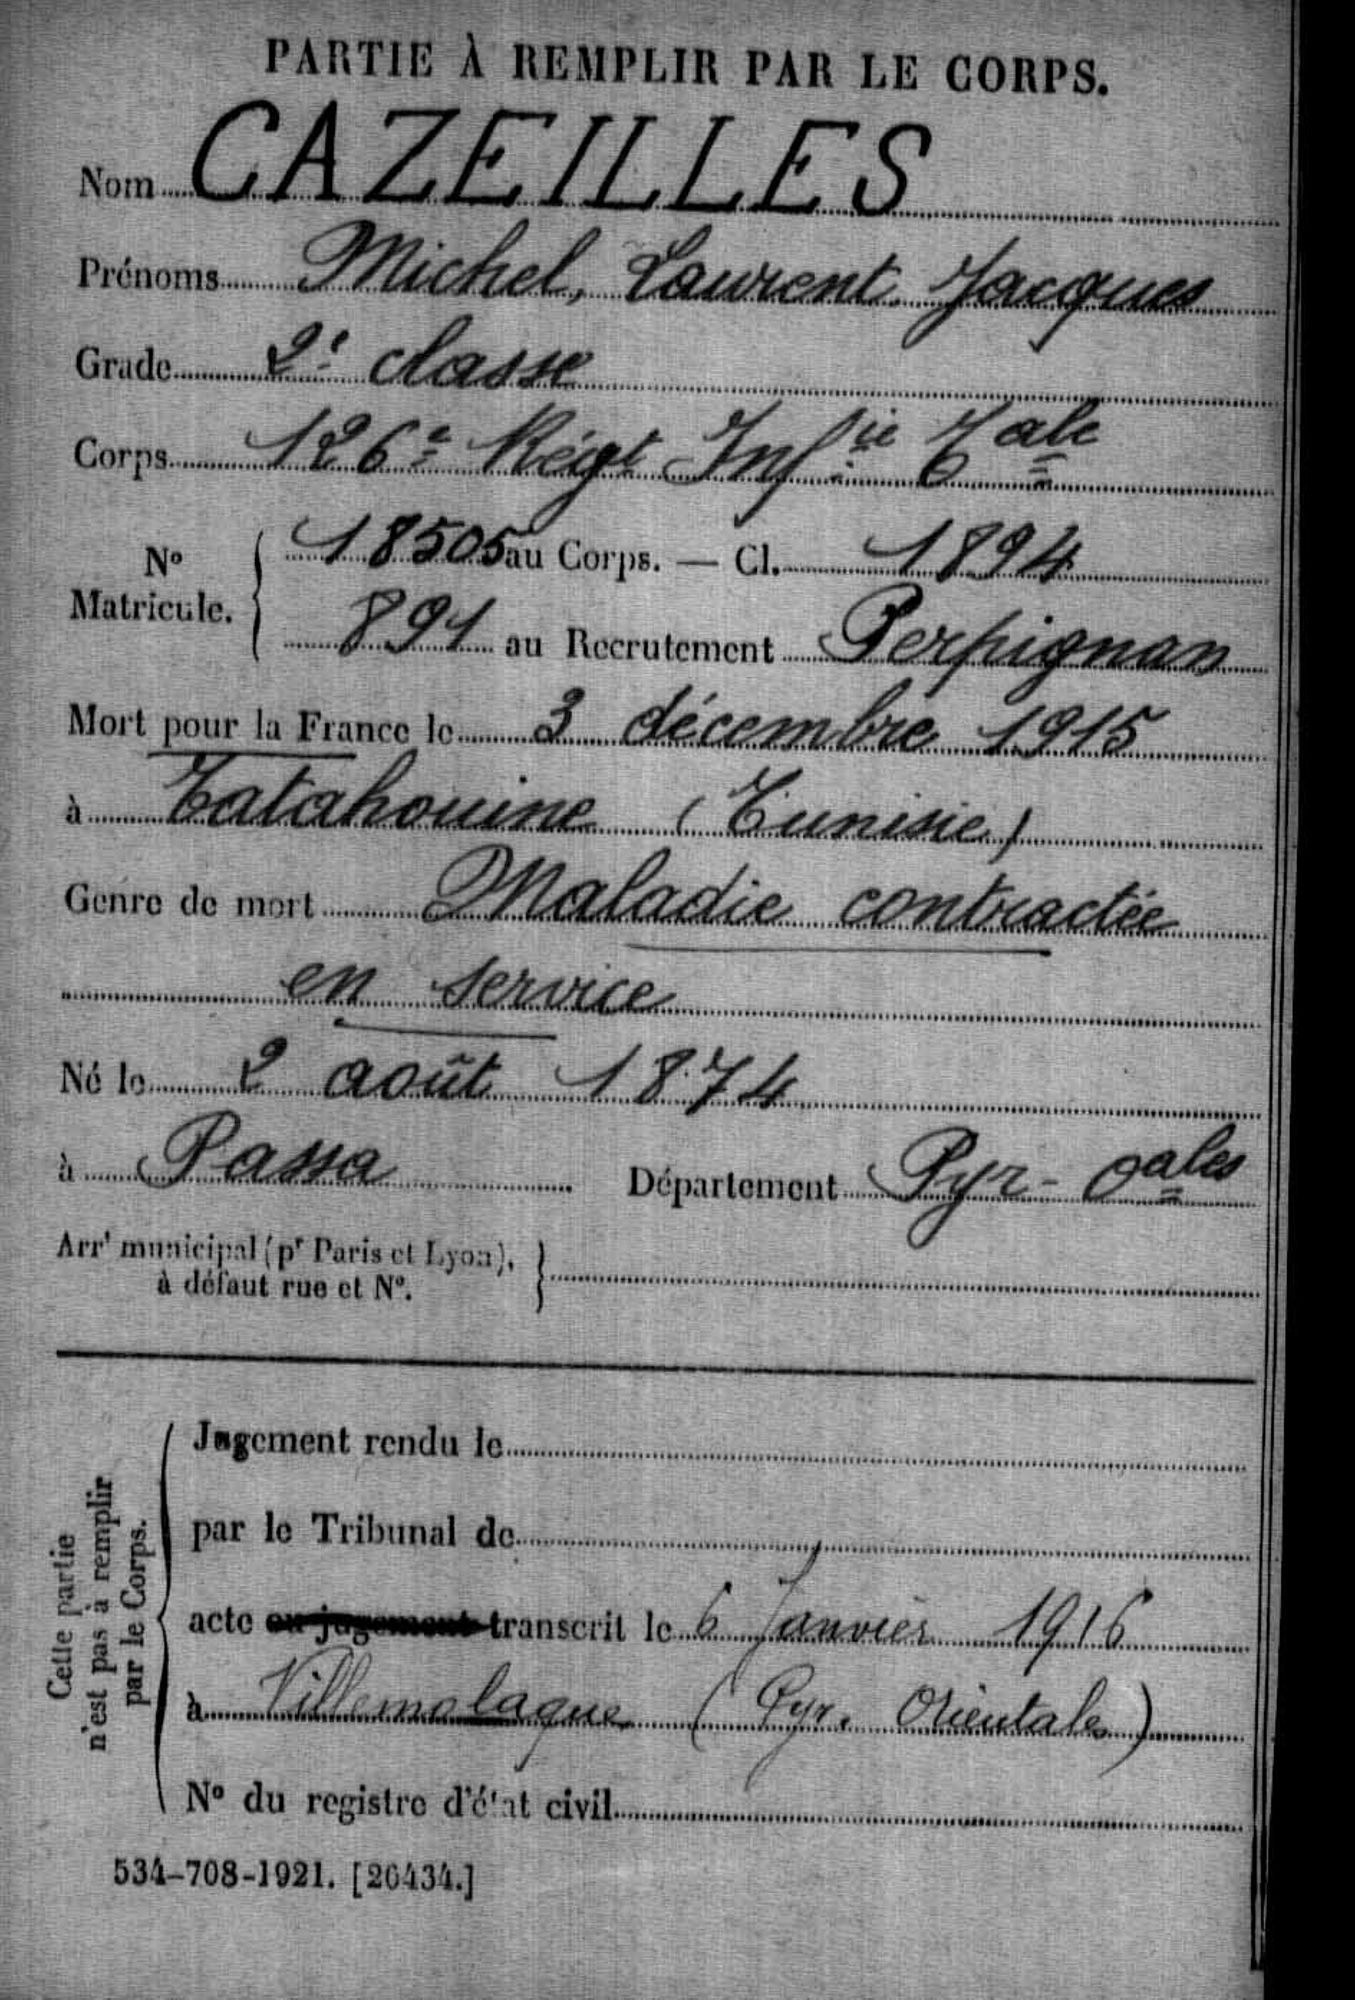 PARTIE À REMPLIR PAR LE CORPS.
Nom CAZEILLES
Prénoms Michel, Laurent, Jacques
Grade 2e classe
Corps 126e Régt Infie Tale
No Matricule. 18505 au Corps. — Cl. 1894
891 au Recrutement Perpignan
Mort pour la France le 3 décembre 1915
à Tatahouine (Tunisie)
Genre de mort Maladie contractée
en service
Né le 2 août 1874
à Passa Département Pyr- Oales
Arrt municipal (pr Paris et Lyon),
à défaut rue et No.
Cette partie
n'est pas à remplir
par le Corps.
Jugement rendu le
par le Tribunal de
acte ou jugement transcrit le 6 Janvier 1916
à Villemolaque (Pyr. Orientales)
No du registre d'état civil
534-708-1921. [26434.]